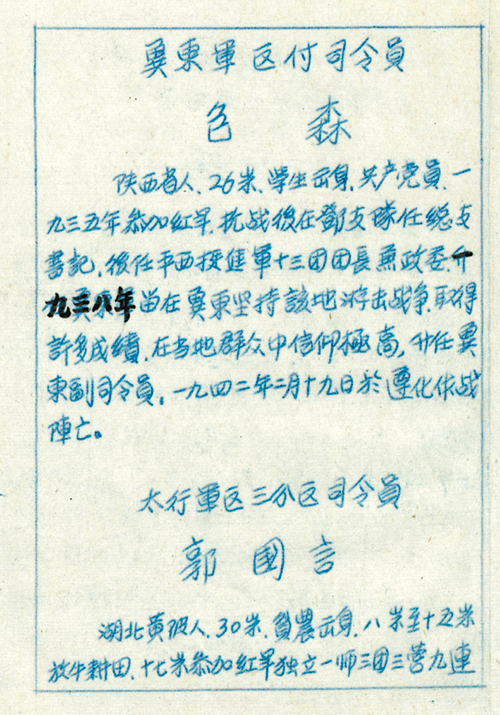 冀東軍区付司令員
包 森
陕西省人、26岁、學生出身、共产党員、一
九三五年参加红軍、抗战後在鄧支隊任總支
書記、後任平西挺進軍十三团团長兼政委、一
九三八年留在冀東坚持該地游击战争、取得
許多成績、在当地群众中信仰極高、升任冀
東副司令員。一九四二年二月十九日於遵化作战
陣亡。
太行軍区三分区司令員
郭國言
湖北黄陂人、30岁、貧農出身、八岁至十五岁
放牛耕田、十七岁参加红軍独立一师三团三营九連